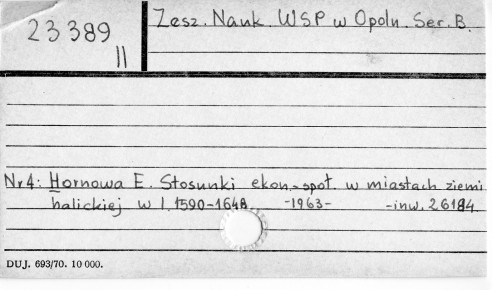 23389
II
Zesz. Nauk. WSP w Opoln. Ser. B.
Nr 4: Hornowa E. Stosunki ekon.-społ. w miastach ziemi
halickiej w l. 1590-1648 -1963- -inw. 26184
DUJ. 693/70. 10 000.